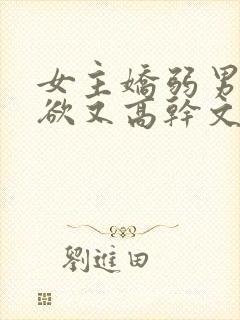 女主嬌弱男
欲又高幹文
劉進田